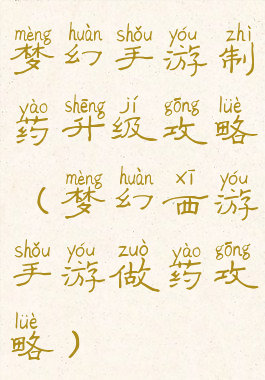 mèng huàn shǒu yóu zhì
梦幻手游制
yào shēng jí gōng lüè
药升级攻略
mèng huàn xī yóu
（梦幻西游
shǒu yóu zuò yào gōng
手游做药攻
lüè
略）